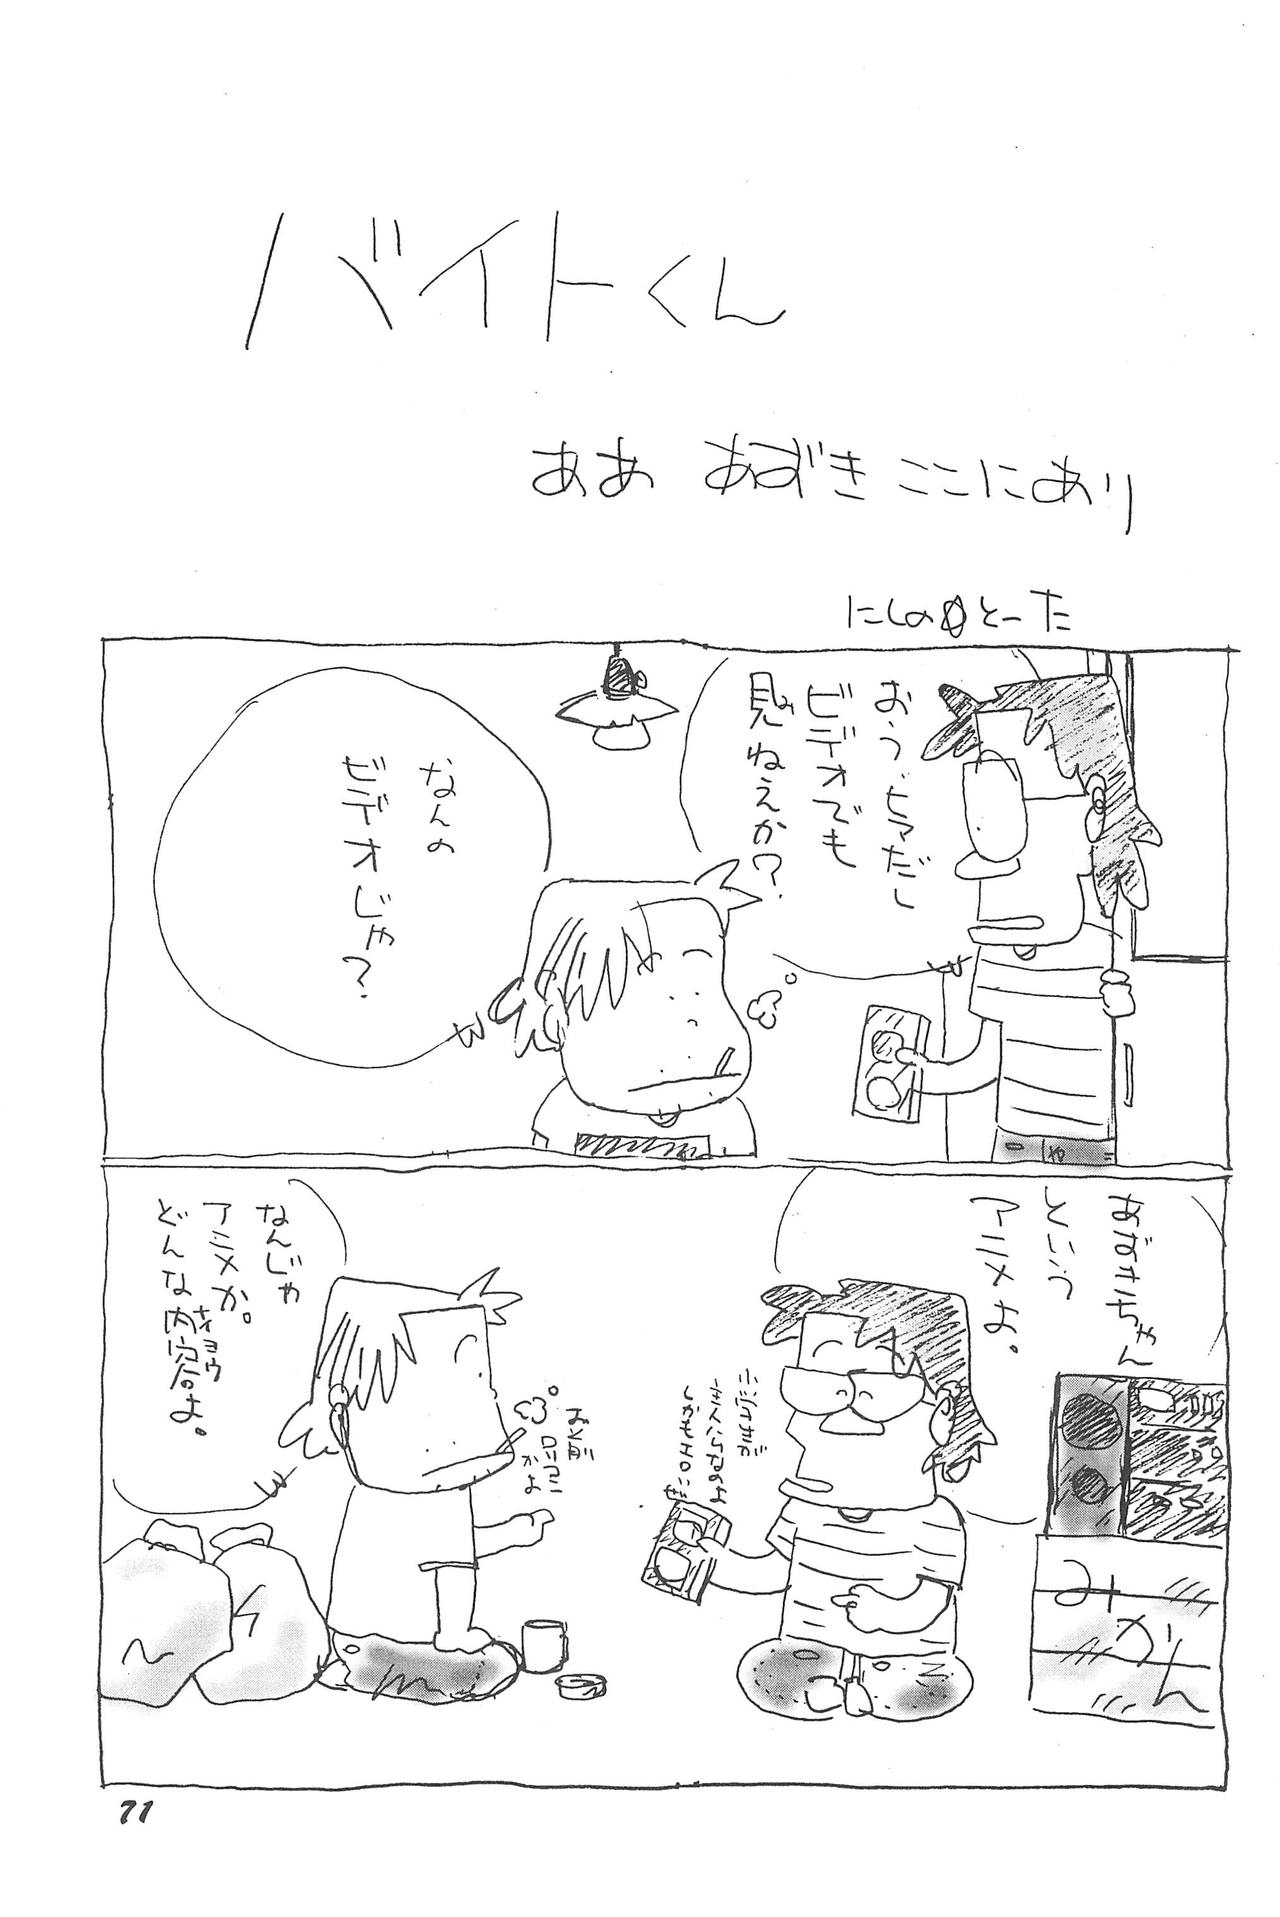 バイトくん
ああ あずき ここにあり
にしのとーた
おう、ヒマだし
ビデオでも
見ねえか?
なんの
ビデオじゃ?
あずきちゃん
という
アニメよ。
しかもエロいぜ
なんじゃ
アニメか。
どんな内容よ。
ナイヨウ
かよ
みかん
71